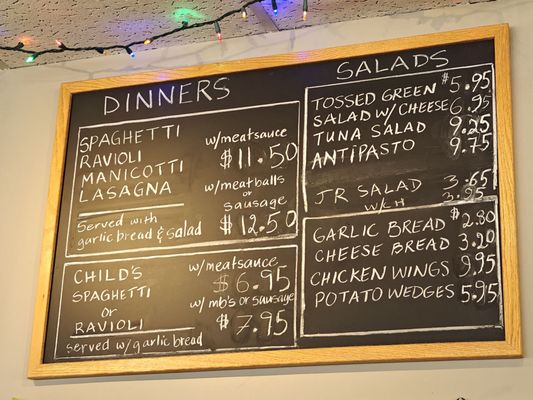 DINNERS
SPAGHETTI
RAVIOLI
MANICOTTI
LASAGNA
Served with
garlic bread & salad
w/meatsauce
$11.50
w/meatballs
or
sausage
$12.50
CHILD'S
SPAGHETTI
or
RAVIOLI
served w/garlic bread
w/meatsauce
$6.95
w/mb's or sausage
$7.95
SALADS
TOSSED GREEN $5.95
SALAD W/CHEESE 6.95
TUNA SALAD 9.25
ANTIPASTO 9.75
JR SALAD 3.65
W/CH 3.95
GARLIC BREAD $2.80
CHEESE BREAD 3.20
CHICKEN WINGS 9.95
POTATO WEDGES 5.95